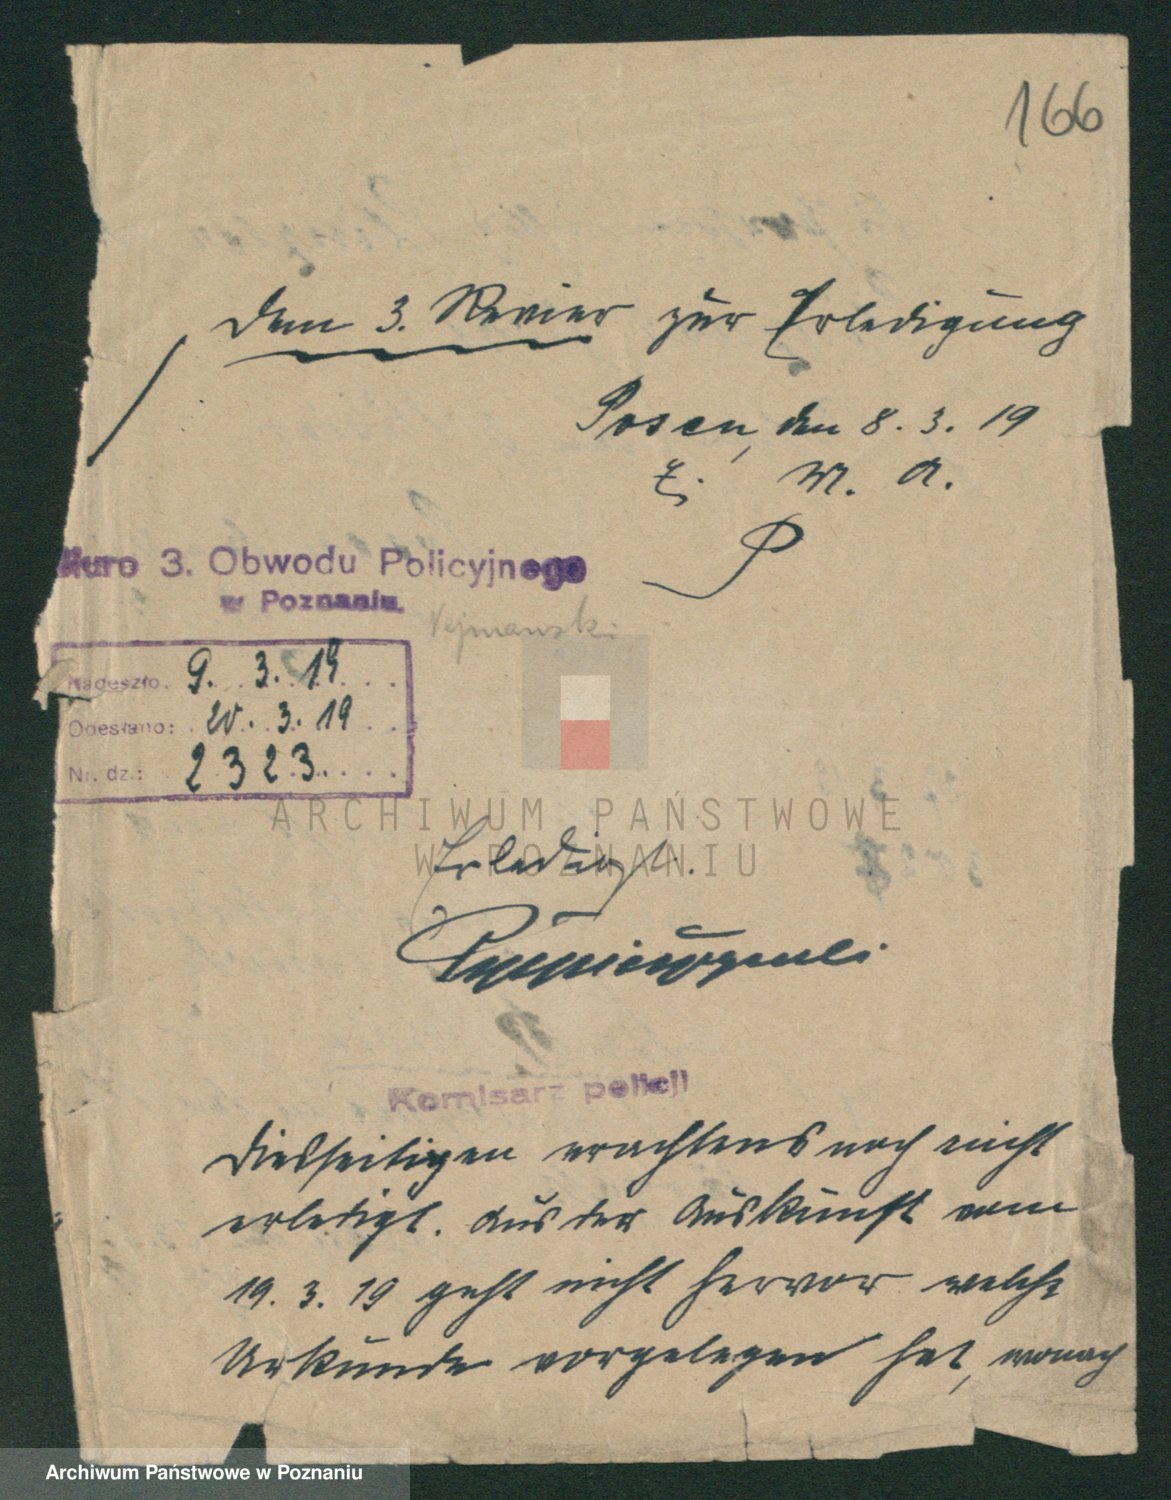 166
Dem 3. Revier zur Erledigung
Posen, den 8. 3. 19
Z. M. A.
P
Biuro 3. Obwodu Policyjnego
w Poznaniu.
Nadeszło. 9. 3. 19
Odesłano: 20. 3. 19
Nr. dz.: 2323
ARCHIWUM PAŃSTWOWE
W POZNANIU
Erledigt.
Komisarz policji
Diesseitigen erachtens noch nicht
erledigt. Aus der Auskunft vom
19. 3. 19 geht nicht hervor welche
Urkunde vorgelegen hat, wonach
Archiwum Państwowe w Poznaniu